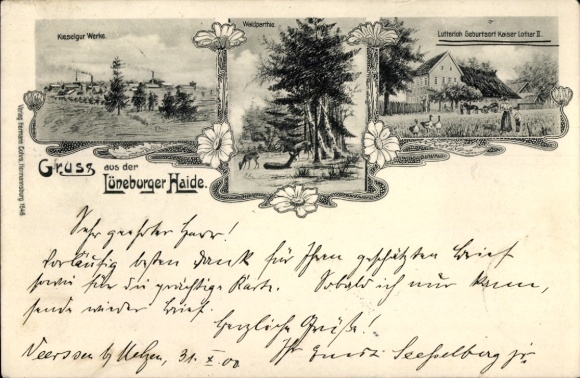 Kieselgur Werke.
Waldparthie.
Lutterloh Geburtsort Kaiser Lothar II.
Gruss aus der
Lüneburger Haide.
Verlag Hermann Cohrs, Hermannsburg 1646
Sehr geehrter Herr!
Vorläufig besten Dank für Ihren geschätzten Brief
sowie für die prächtige Karte. Sobald ich nur kann,
sende wieder Brief.
Herzliche Grüße!
Veerssen b/ Uelzen, 31. X. 00
Ihr Ernst Seesselberg jr.